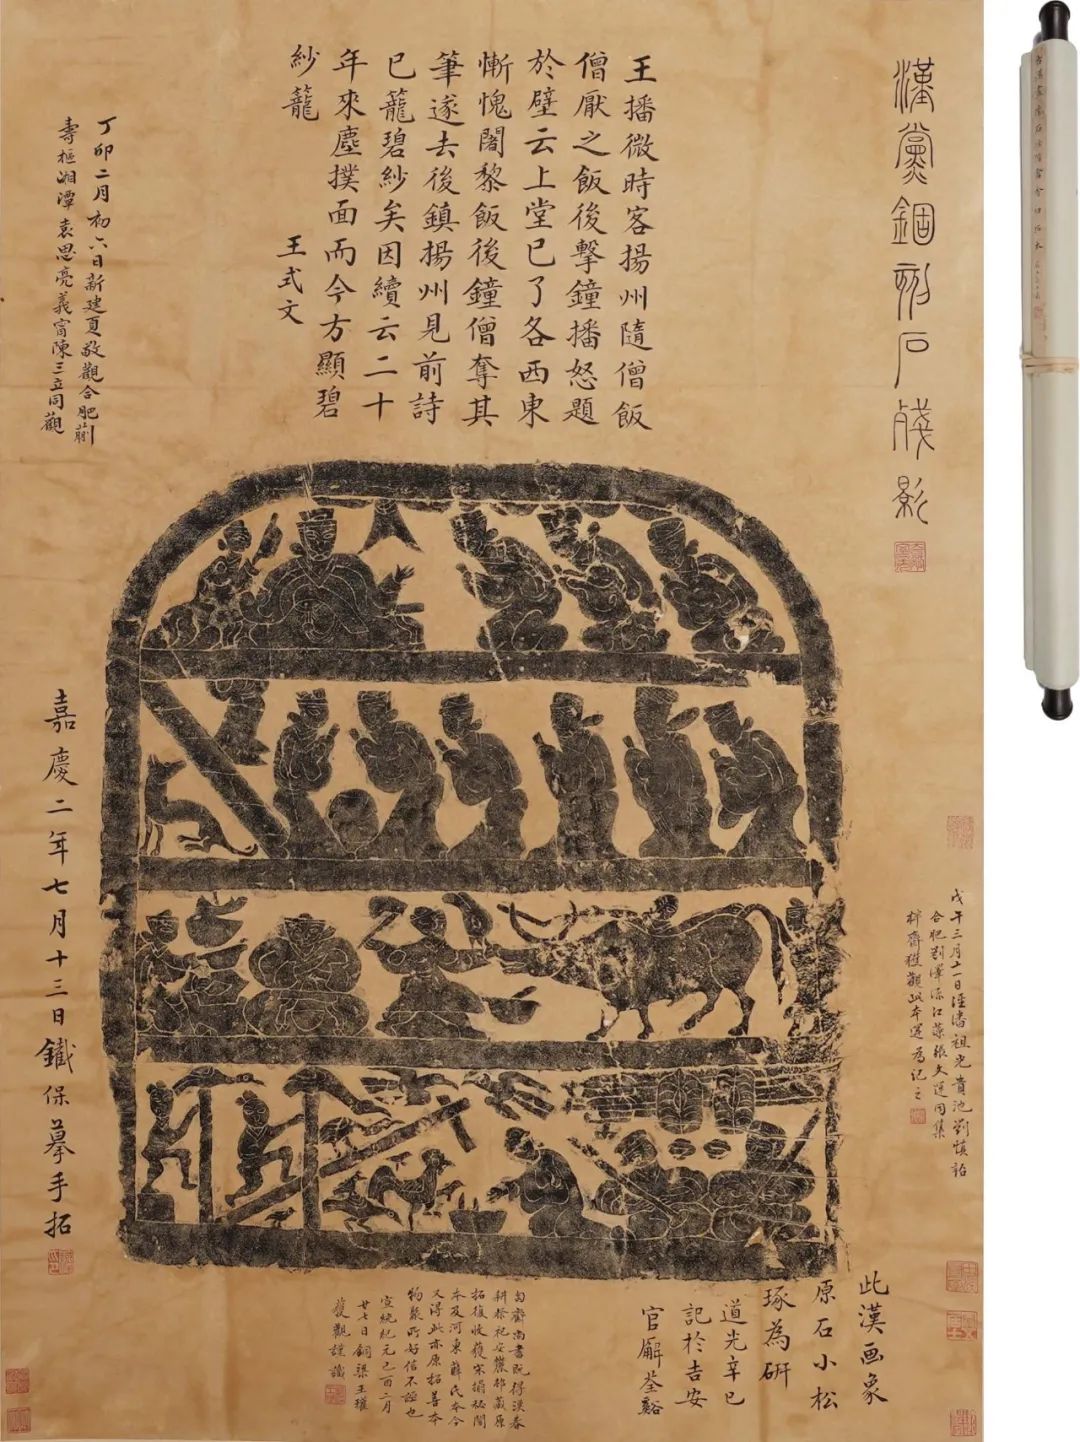 漢黨錮刻石殘影
王播微時客揚州隨僧飯
僧厭之飯後擊鐘播怒題
於壁云上堂已了各西東
慚愧闍黎飯後鐘僧奪其
筆遂去後鎮揚州見前詩
已籠碧紗矣因續云二十
年來塵撲面而今方顯碧
紗籠
王式文
丁卯二月初六日新建夏敬觀合肥蒯
壽樞湘潭袁思亮義甯陳三立同觀
嘉慶二年七月十三日鐵保摹手拓
戊午三月十一日涇潘祖光貴池劉慎詒
合肥劉澤源江藻張文運同集
獲觀此本運為記之
此漢画象
原石小松
琢為硏
道光辛巳
記於吉安
官廨荃谿
匋齋尚書既得漢春
拓復收獲宋搨秘閣
本及河東薛氏本今
又得此亦原拓善本
物聚所好信不誣也
宣統紀元己酉二月
廿七日銅梁王瓘
獲觀謹識